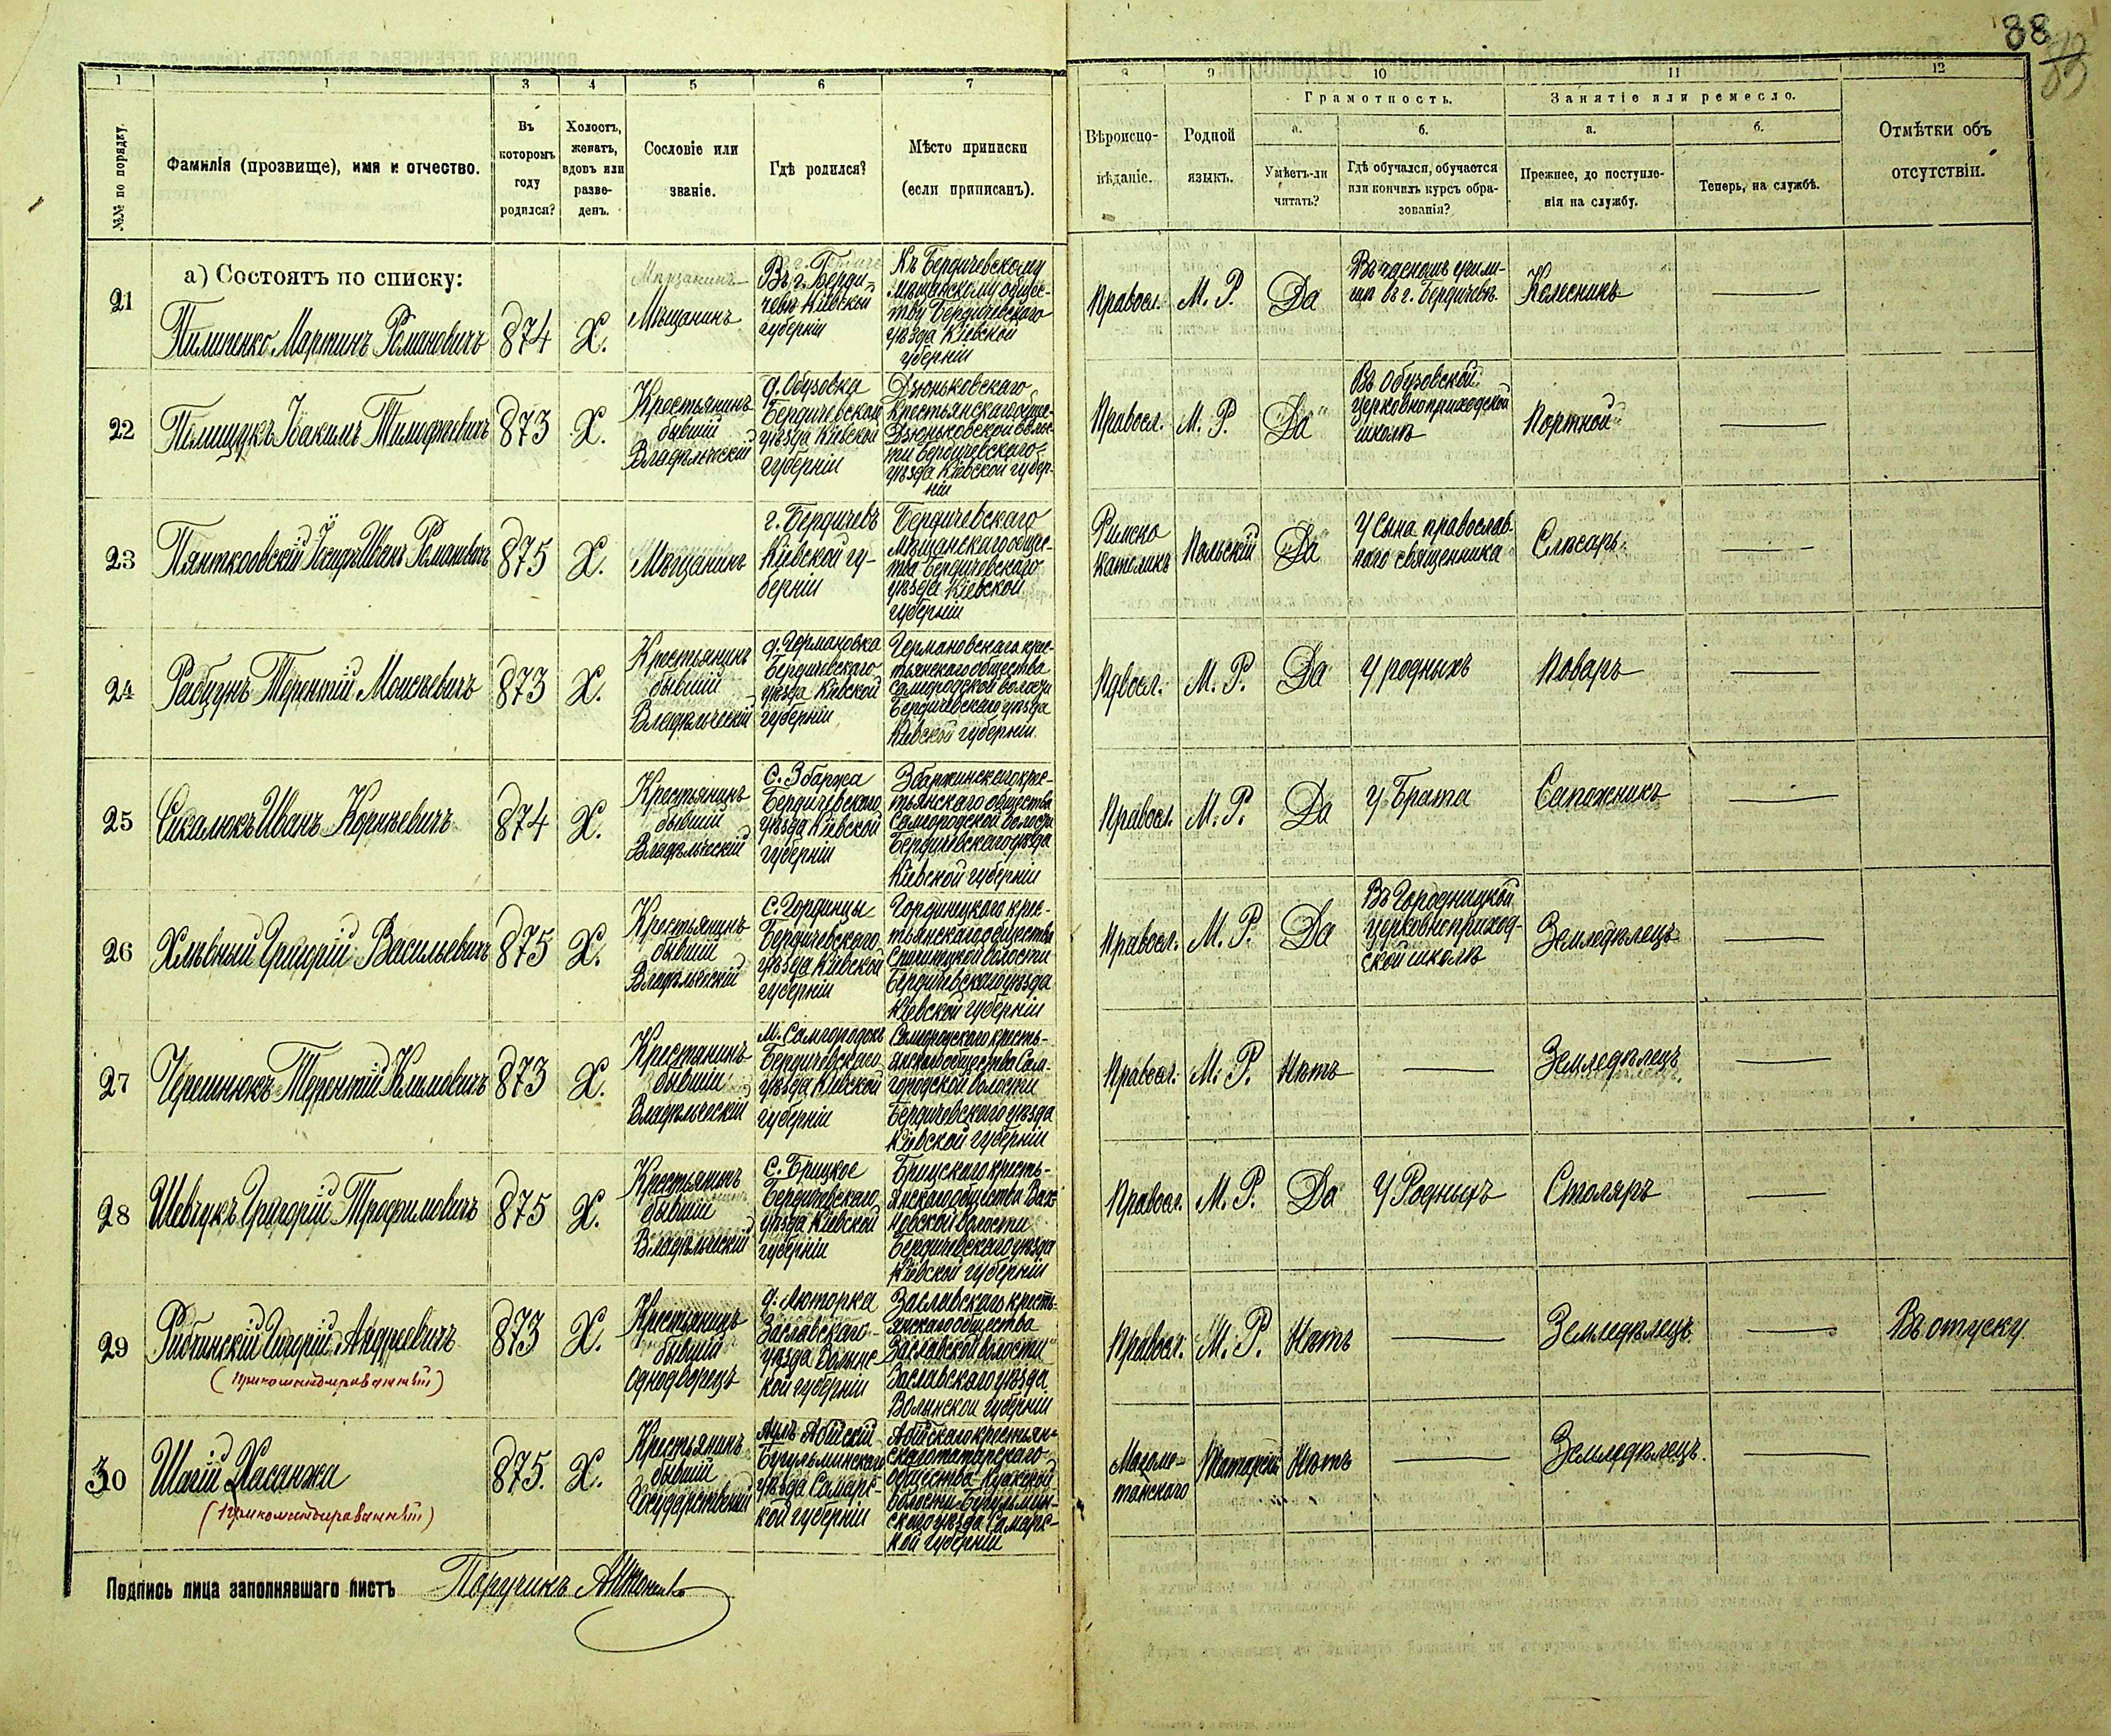 88
1
1
3
4
5
6
7
8
9
10
11
12
№№ по порядку.
Фамилія (прозвище), имя и отчество.
Въ
которомъ
году
родился?
Холостъ,
женатъ,
вдовъ или
разве-
денъ.
Сословіе или
званіе.
Гдѣ родился?
Мѣсто приписки
(если приписанъ).
Вѣроиспо-
вѣданіе.
Родной
языкъ.
Грамотность.
а.
Умѣетъ-ли
читать?
б.
Гдѣ обучался, обучается
или кончилъ курсъ обра-
зованія?
Занятіе или ремесло.
а.
Прежнее, до поступле-
нія на службу.
б.
Теперь, на службѣ.
Отмѣтки объ
отсутствіи.
а) Состоятъ по списку:
21
Пилипенко Мартинъ Романовичъ
874
Х.
Мѣщанинъ
Въ г. Берди-
чевѣ Кіевской
губерніи
Къ Бердичевскому
мѣщанскому общес-
тву Бердичевскаго
уѣзда Кіевской
губерніи
Правосл.
М. Р.
Да
Въ частномъ учили-
щѣ въ г. Бердичевѣ.
Колесникъ
22
Полищукъ Іоакимъ Тимофѣевичъ
873
Х.
Крестьянинъ
бывшій
Владѣльческій
д. Обузовка
Бердичевской
уѣзда Кіевской
губерніи
Дзюньковскаго
крестьянскаго общес-
Дзюньковской волос-
ти Бердичевскаго
уѣзда Кіевской губер-
ніи
Правосл.
М. Р.
Да
Въ Обузовской
церковноприходской
школѣ
Портной
23
Пянтковскій Іосифъ Иванъ Романовичъ
875
Х.
Мѣщанинъ
г. Бердичевъ
Кіевской гу-
берніи
Бердичевскаго
мѣщанскаго общес-
тва Бердичевскаго
уѣзда Кіевской
губерніи
Римско
католикъ
Польскій
Да
У сына православ-
наго священника
Слѣсарь
24
Рабцунъ Терентій Моисѣевичъ
873
Х.
Крестьянинъ
бывшій
Владѣльческій
д. Германовка
Бердичевскаго
уѣзда Кіевской
губерніи
Германовскаго крес-
тьянскаго общества
Самгородской волости
Бердичевскаго уѣзда
Кіевской губерніи
Пдвосл.
М. Р.
Да
У родныхъ
Поваръ
25
Сикалюкъ Иванъ Корнѣевичъ
874
Х.
Крестьянинъ
бывшій
Владѣльческій
С. Збаржа
Бердичевскаго
уѣзда Кіевской
губерніи
Збаржинскаго крес-
тьянскаго общества
Самгородской волости
Бердичевскаго уѣзда
Кіевской губерніи
Правосл.
М. Р.
Да
У Брата
Сапожникъ
26
Хлѣвный Григорій Васильевичъ
875
Х.
Крестьянинъ
бывшій
Владѣльческій
С. Гординцы
Бердичевскаго
уѣзда Кіевской
губерніи
Гординецкаго крес-
тьянскаго общества
волости
Бердичевскаго уѣзда
Кіевской губерніи
Правосл.
М. Р.
Да
Въ
церковноприход-
ской школѣ
Земледѣлецъ
27
Черешнюкъ Терентій Климовичъ
873
Х.
Крестянинъ
бывшій
Владѣльческій
М. Самгородокъ
Бердичевскаго
уѣзда Кіевской
губерніи
Самгородскаго кресть-
янскаго общества Сам-
городской волости
Бердичевскаго уѣзда
Кіевской губерніи
Правосл.
М. Р.
Нѣтъ
Земледѣлецъ
28
Шевчукъ Григорій Трофимовичъ
875
Х.
Крестьянинъ
бывшій
Владѣльческій
С. Брицкое
Бердичевскаго
уѣзда Кіевской
губерніи
Брицскаго кресть-
янскаго общества Вах-
новской волости
Бердичевскаго уѣзда
Кіевской губерніи
Правосл.
М. Р.
Да
У Родныхъ
Столяръ
29
Рибчинскій Григорій Андреевичъ
(прикомандированный)
873
Х.
Крестьянинъ
бывшій
однодворецъ
д. Люторка
Заславскаго
уѣзда Волынс-
кой губерніи
Заславскаго кресть-
янскаго общества
Заславской волости
Заславскаго уѣзда
Волынской губерніи
Правосл.
М. Р.
Нѣтъ
Земледѣлецъ
Въ отпуску.
30
Шагій Хасанжа
(прикомандированный)
875.
Х.
Крестьянинъ
бывшій
Государственный
Аулъ Абійскій
Бугульминскаго
уѣзда Самарс-
кой губерніи
Абійскаго крестьян-
скаго татарскаго
общества
волости Бугульмин-
скаго уѣзда Самарс-
кой губерніи
Магоме-
танскаго
Татарскій
Нѣтъ
Земледѣлецъ.
Подпись лица заполнявшаго листъ
Поручикъ